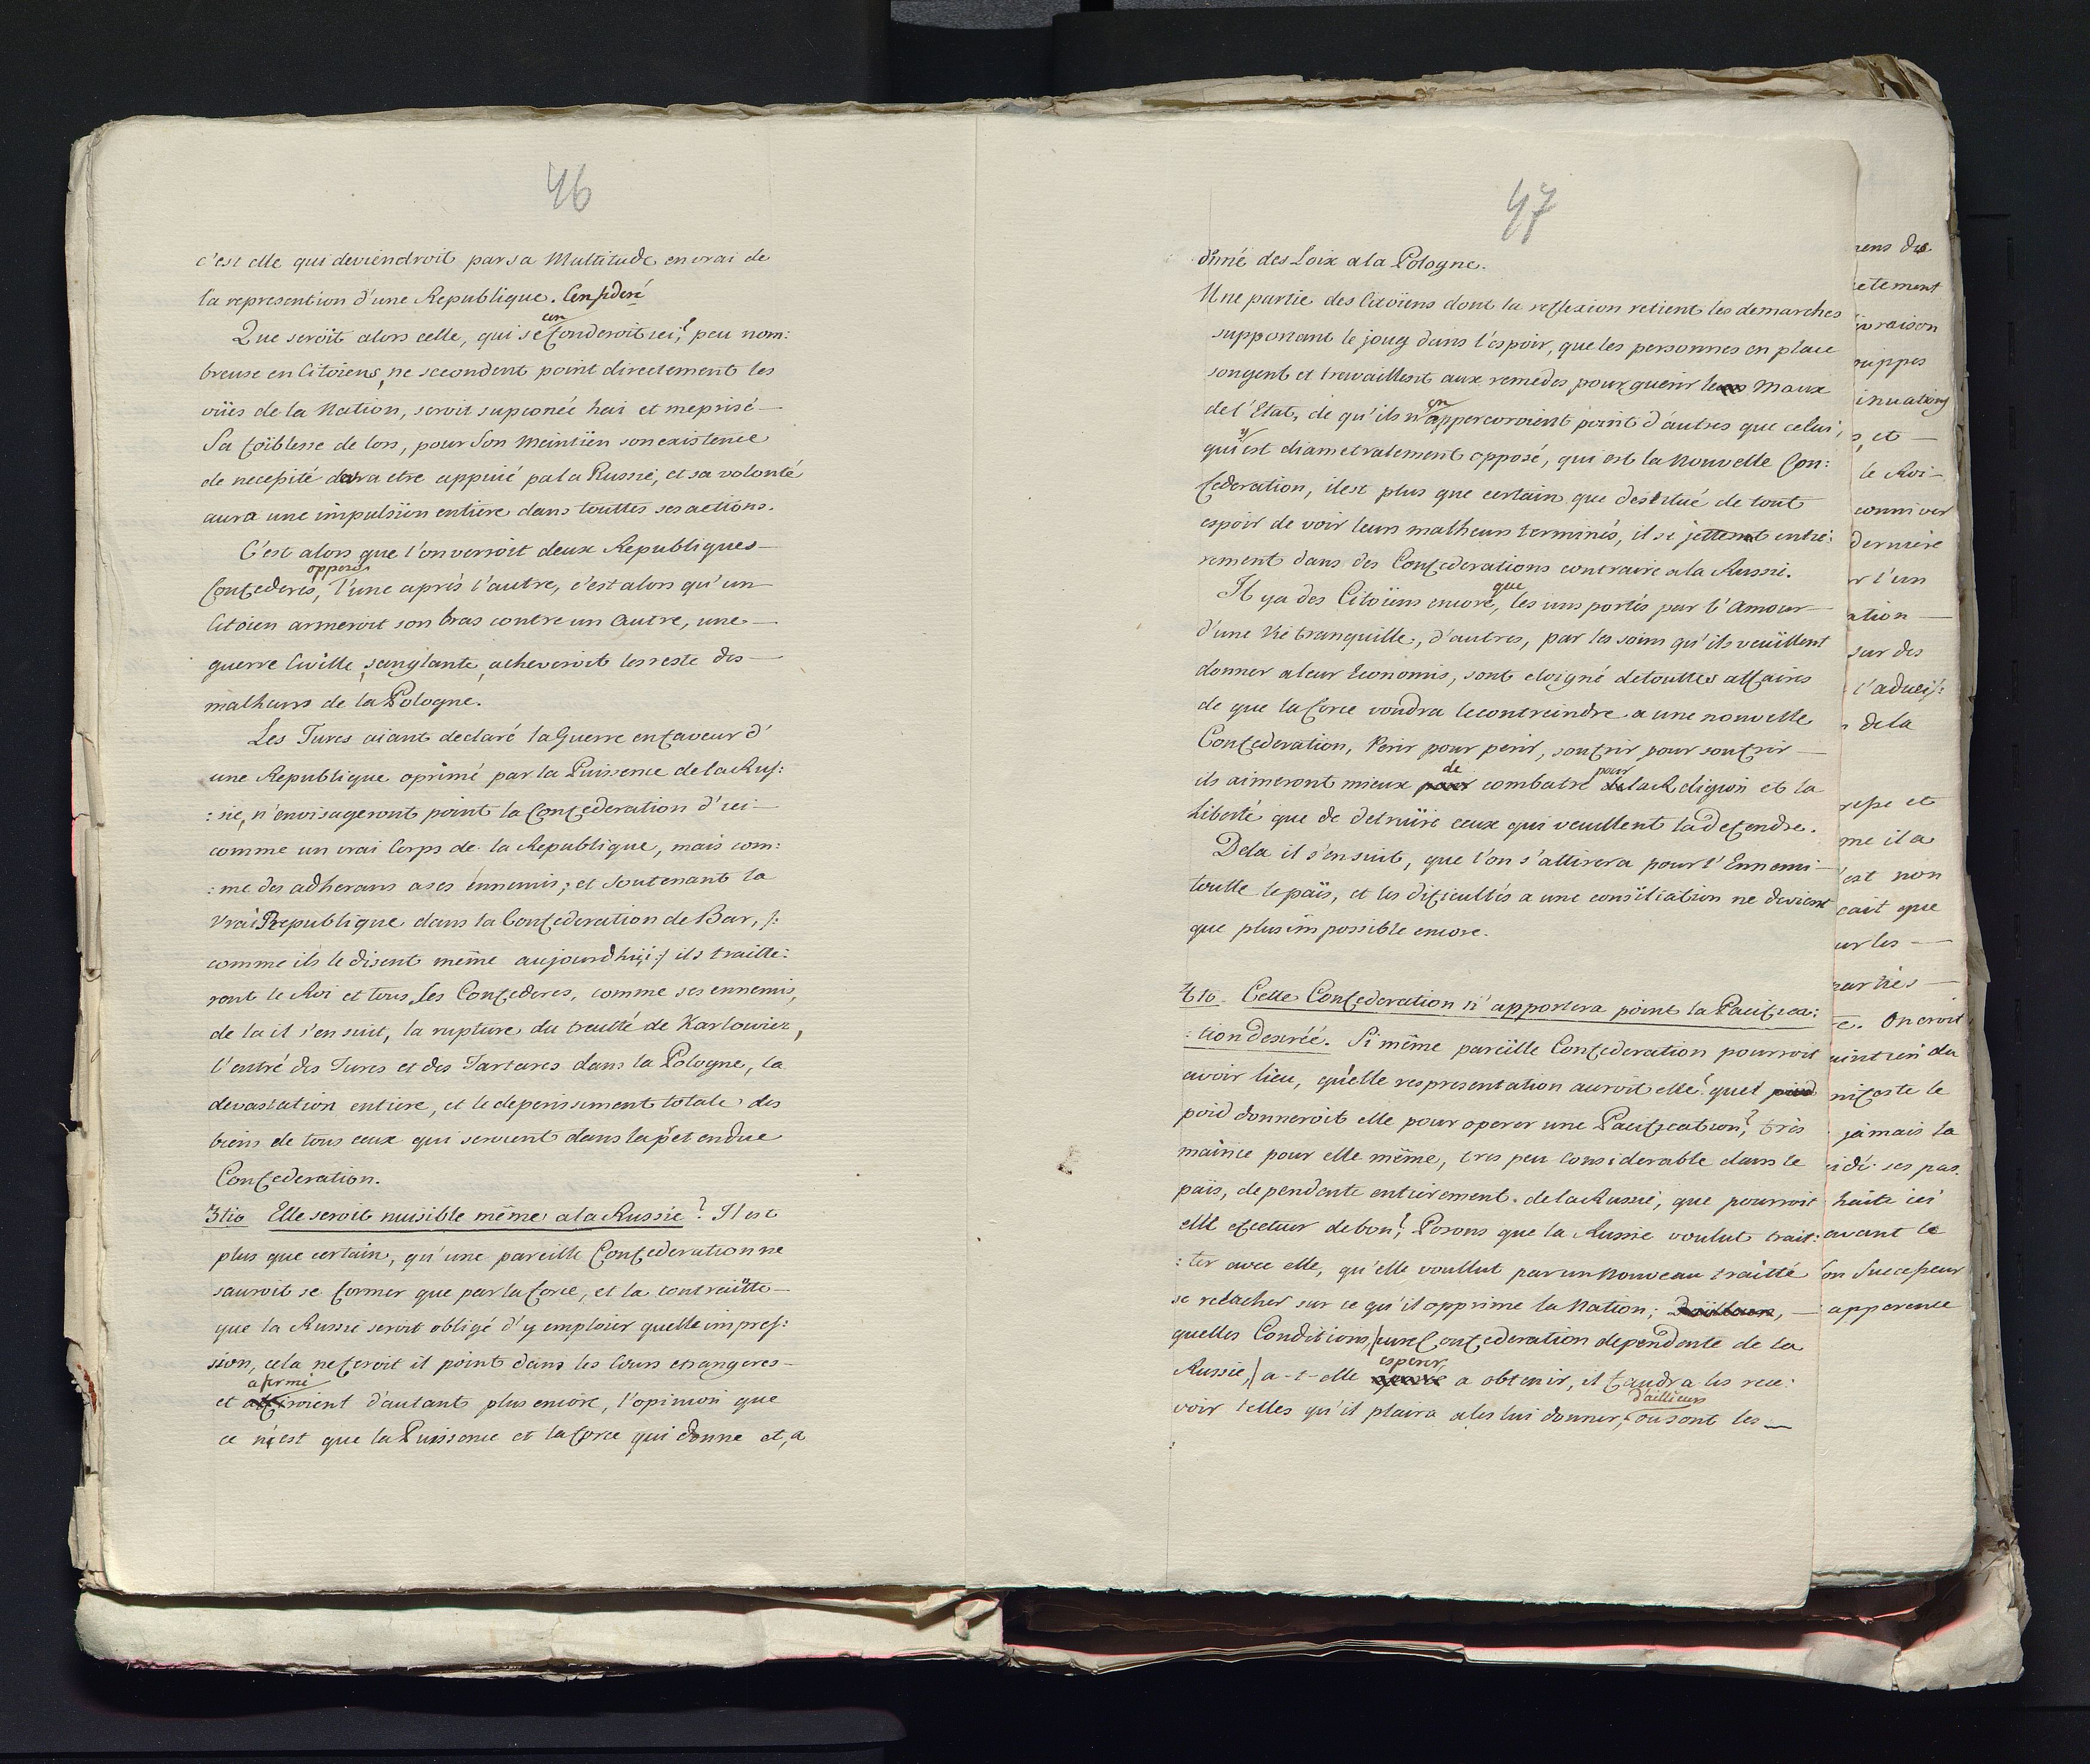 46
c'est elle qui deviendroit par sa Multitude en vrai de
la represention d'une Republique. Confederé
Que seroit alors celle, qui se confonderoit ici? peu nom:
breuse en Citoiens, ne secondent point directement les
vües de la Nation, seroit supconée hai et meprisé —
Sa foiblesse de lors, pour Son Meintien son existence
de necessité devra etre appuié pa la Russie, et sa volonté
aura une impulsion entiere dans touttes ses actions.
C'est alors que l'on verroit deux Republiques —
opposés
Confederés, l'une après l'autre, c'est alors qu'un
Citoien armeroit son bras contre un Autre, une —
guerre Civille, sanglante, acheveroit les reste des —
malheurs de la Pologne.
Les Turcs aiant declaré la Guerre en faveur d'
une Republique oprimé par la Puissence de la Rus:
:sie, n'envisageront point la Confederation d'ici —
comme un vrai Corps de la Republique, mais com:
:me des adherans a ses ennemis; et Soutenant la
vrai Republique dans la Confederation de Bar, /:
comme ils le disent même aujourdhui :/ ils traitte:
ront le Roi et tous les Confederes, comme ses ennemis,
de la il s'en suit, la rupture du treutté de Karlowicz,
l'entré des Turcs et des Tartares dans la Pologne, la
devastation entiere, et le deperissement totale des
biens de tous ceux qui seroient dans la pretendue
Confederation.
3tio Elle seroit nuisible même a la Russie? Il est
plus que certain, qu'une pareille Confederation ne
sauroit se former que par la force, et la contraitte —
que la Russie seroit obligé d'y emploier quelle impres:
sion, cela ne feroit il point dans les Cours etrangeres —
afermi
et roient d'autant plus encore, l'opinion que
ce n'est que la Puissence et la force qui donne et, a
47
donné des Loix a la Pologne.
Une partie des Citoïens dont la reflexion retient les demarches
supportant le joug dans l'espoir, que les personnes en place
songent et travaillent aux remedes pour guerir les Maux
de l'Etat, de qu'ils n'en appercoroient point d'autres que celui,
qui y est diametralement opposé, qui est la Nouvelle Con:
federation, il est plus que certain que destitué de tout
espoir de voir leurs malheurs terminés, il se jettent entie:
rement dans des Confederations contraire a la Russie.
Il y a des Citoïens encore, que les uns portés par l'Amour —
d'une Vie tranquille, d'autres, par les soins qu'ils veuillent
donner a leur Economis, sont eloigné de touttes affaires
de que la force voudra le contreindre a une nouvelle
Confederation, Perir pour perir, soufrir pour soufrir —
ils aimeront mieux de combatre pour la Religion et la
Liberté que de detruire ceux qui veuillent la defendre.
Dela il s'en suit, que l'on s'attirera pour l'Ennemi —
toutte le païs, et les dificultés a une consiliation ne devient
que plus impossible encore.
4to. Cette Confederation n'apportera point la Pacifica:
:tion desirée. Si même pareille Confederation pourroit
avoir lieu, qu'elle respresentation auroit elle? quel
poid donneroit elle pour operer une Pacification? très
maince pour elle même, tres peu considerable dans le
païs, dependente entierement de la Russie, que pourroit
elle efectuer de bon? Posons que la Russie voulut trait:
:ter avec elle, qu'elle voullut par un Nouveau traitté
se relacher sur ce qu'il opprime la Nation; —
quelles Conditions, /une Confederation dependente de la
Russie,/ a-t-elle esperer, a obtenir, il faudra les rece:
voir telles qu'il plaira a les lui donner, d'aillieurs ou sont les —
rens du
etement
ivraison
inuations
s, et —
le Roi —
conniver
derniere
r l'un
ation —
sur des
l'aducis:
de la
me il a
'est non
ur les —
. On croit
nifeste le
jamais la
idé ses pas
avant le
on Successeur
apparence